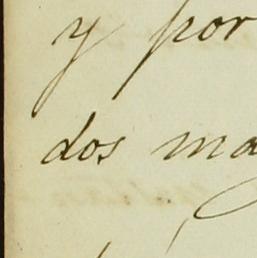 y por
dos ma